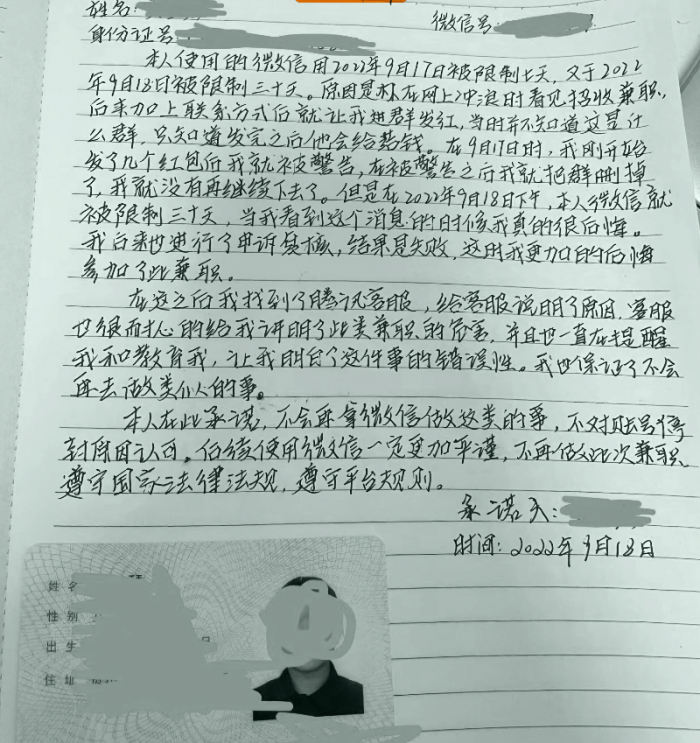 姓名:
微信号:
身份证号
本人使用的微信用2022年9月17日被限制七天,又于2022
年9月18日被限制三十天。原因是我在网上冲浪时看见招收兼职,
后来加上联系方式后就让我进群发红,当时并不知道这是什
么群,只知道发完之后他会给些钱。在9月17日时,我刚开始
发了几个红包后我就被警告,在被警告之后我就把群删掉
了,我就没有再继续下去了。但是在2022年9月18日下午,本人微信就
被限制三十天,当我看到这个消息的时候我真的很后悔。
我后来也进行了申诉复核,结果是失败,这时我更加的后悔
参加了此兼职。
在这之后我找到了腾讯客服,给客服说明了原因,客服
也很耐心的给我讲明了此类兼职的危害,并且也一直在提醒
我和教育我,让我明白了这件事的错误性。我也保证了不会
再去做类似的事。
本人在此承诺,不会再拿微信做这类的事,不对账号停
封原因认可。后续使用微信一定更加严谨,不再做此次兼职、
遵守国家法律法规,遵守平台规则。
承诺人:
时间:2022年9月18日
姓名
性别
出生
住址